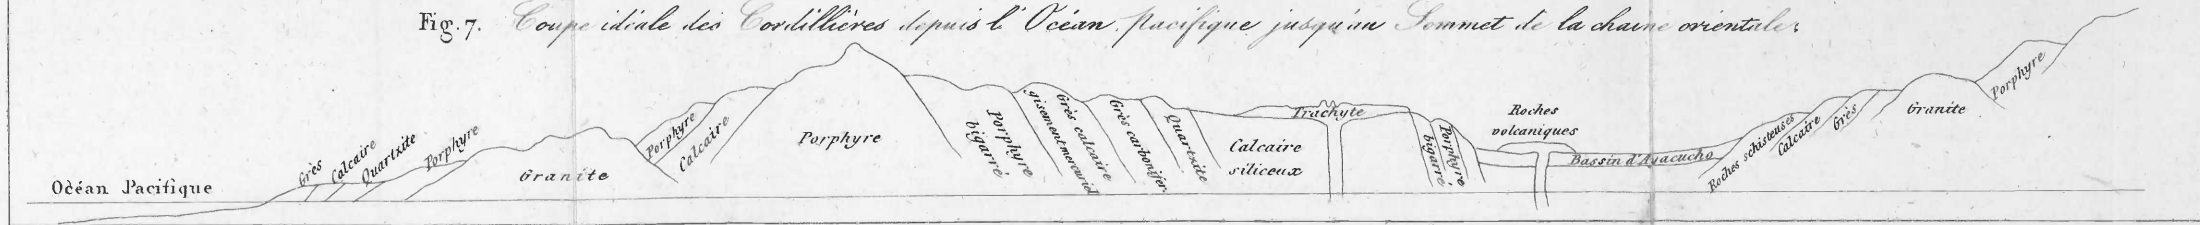 Fig. 7. Coupe idéale des Cordillières depuis l'Océan Pacifique jusqu'au Sommet de la chaine orientale.
Océan Pacifique
Grès
Calcaire
Quartxite
Porphyre
Granite
Porphyre
Calcaire
Porphyre
Porphyre
bigarré
gisement mercuriel
Grès calcaire
Grès carbonifer
Quartxite
Calcaire
siliceux
Trachyte
Porphyre
bigarré
Roches
volcaniques
Bassin d'Ayacucho
Roches schisteuses
Calcaire
Grès
Granite
Porphyre